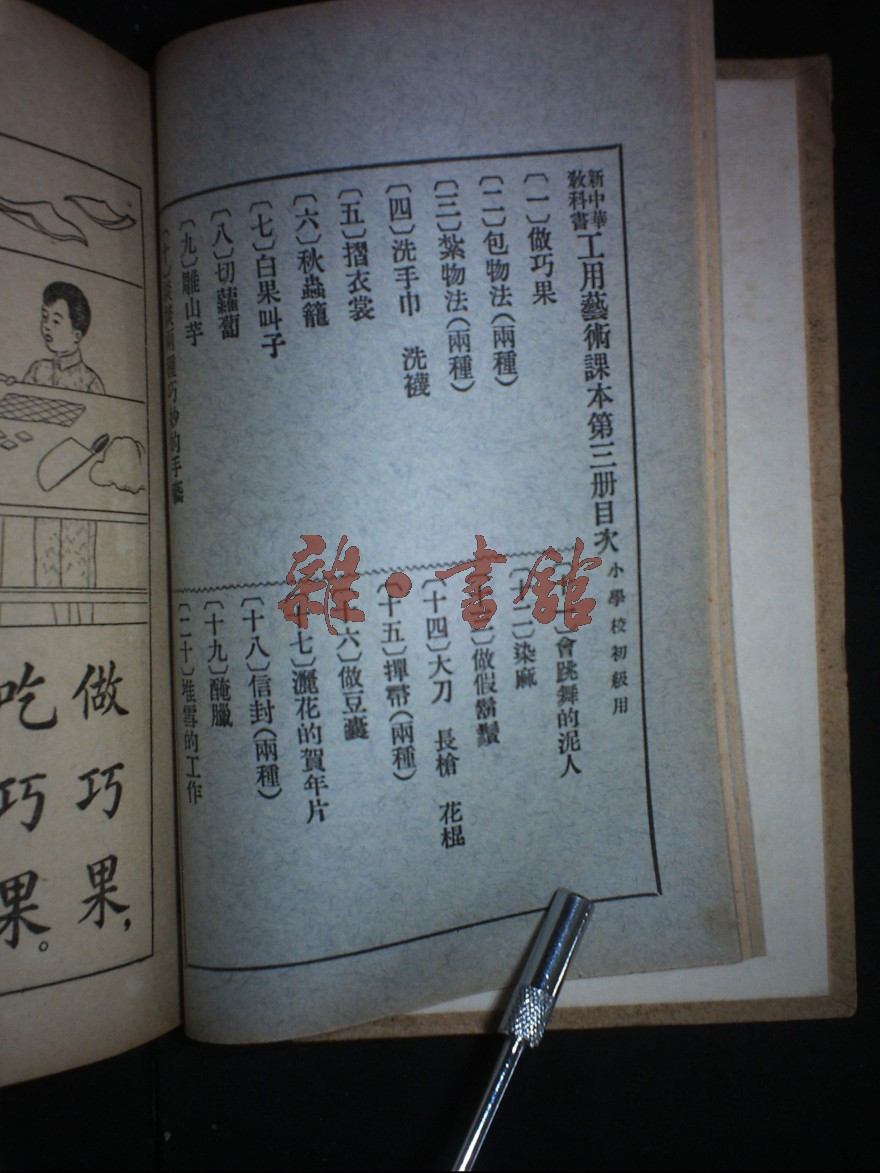 新中華
教科書
工用藝術課本第三册目次
小學校初級用
〔一〕做巧果
〔二〕包物法(兩種)
〔三〕紮物法(兩種)
〔四〕洗手巾 洗襪
〔五〕摺衣裳
〔六〕秋蟲籠
〔七〕白果叫子
〔八〕切蘿蔔
〔九〕雕山芋
兩種巧妙的手藝
會跳舞的泥人
二〕染麻
〕做假鬍鬚
〔十四〕大刀 長槍 花棍
〔十五〕撣帚(兩種)
十六〕做豆囊
十七〕灑花的賀年片
〔十八〕信封(兩種)
〔十九〕醃臘
〔二十〕堆雪的工作
做巧果,
吃巧果。
雜·書館